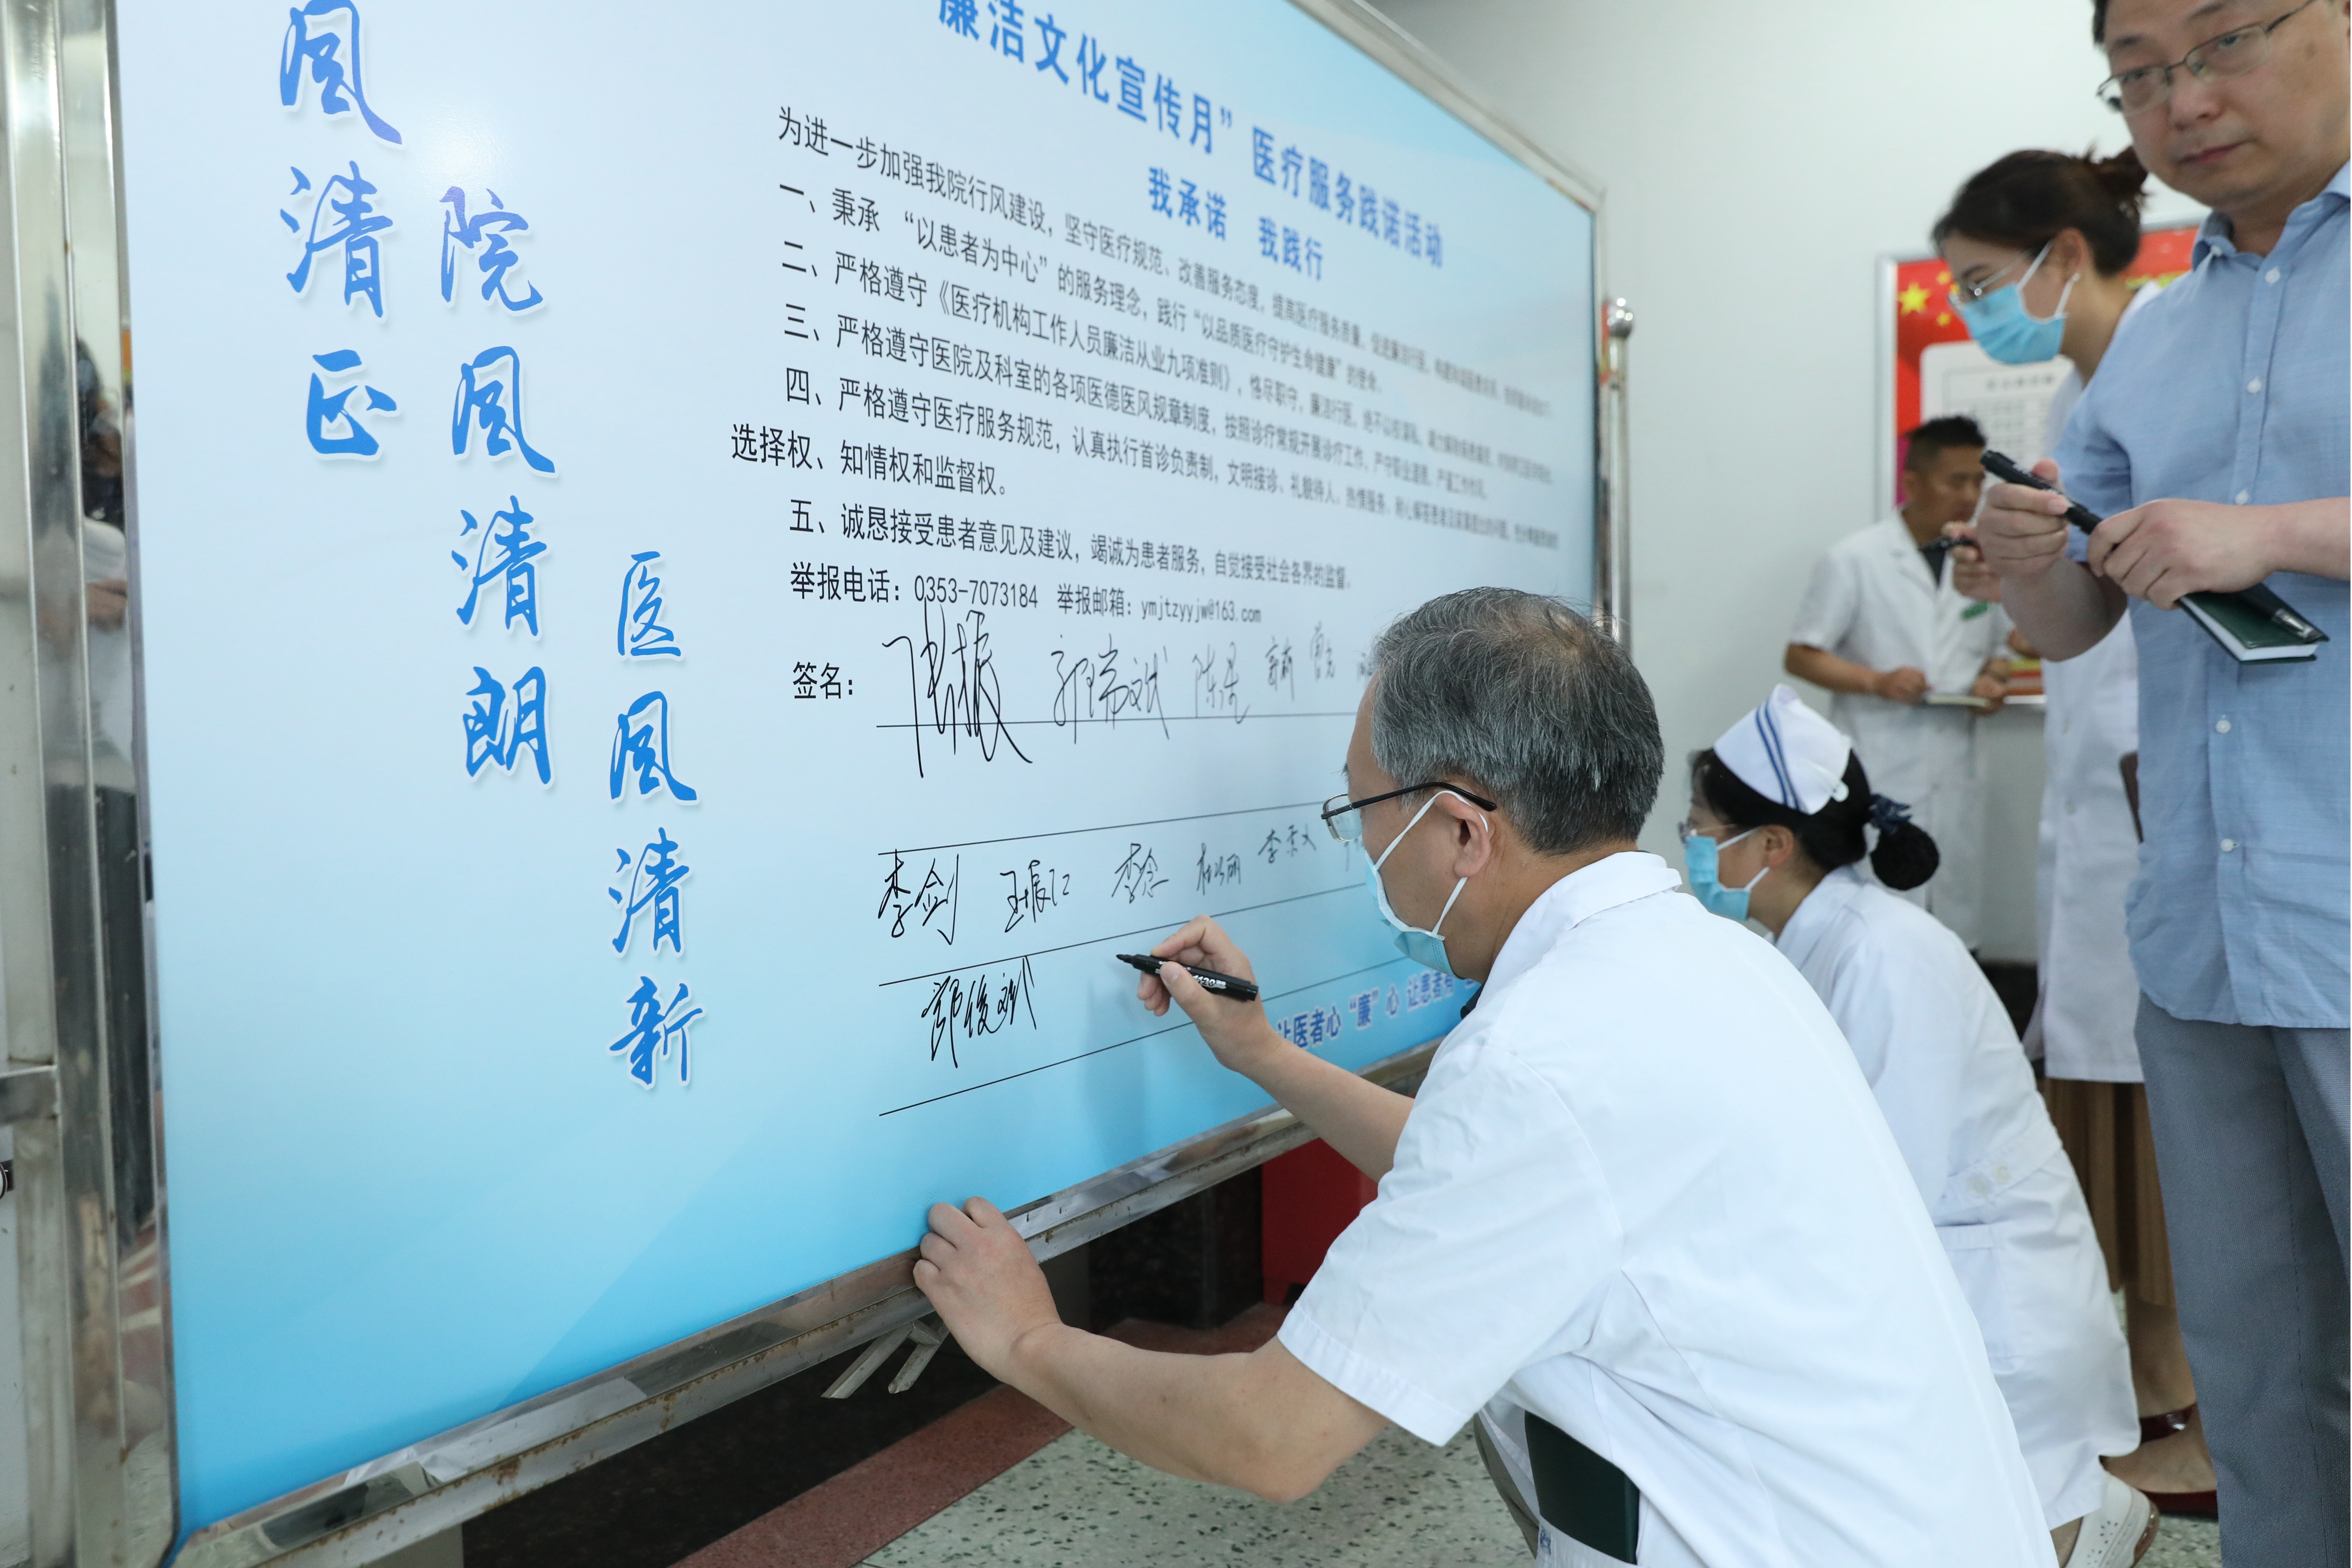 风清正
院风清朗
医风清新
廉洁文化宣传月”医疗服务践诺活动
我承诺 我践行
为进一步加强我院行风建设，坚守医疗规范、改善服务态度，提高医疗服务质量，促进廉洁行医，构建和谐医患关系，
一、秉承 “以患者为中心”的服务理念，践行“以品质医疗守护生命健康”的使命。
二、严格遵守《医疗机构工作人员廉洁从业九项准则》，恪尽职守，廉洁行医，绝不以权谋私，
三、严格遵守医院及科室的各项医德医风规章制度，按照诊疗常规开展诊疗工作，严守职业道德，严谨工作作风。
四、严格遵守医疗服务规范，认真执行首诊负责制，文明接诊、礼貌待人、热情服务，耐心解答患者及家属提出的问题，
选择权、知情权和监督权。
五、诚恳接受患者意见及建议，竭诚为患者服务，自觉接受社会各界的监督。
举报电话：0353-7073184 举报邮箱：ymjtzyyjw@163.com
签名： 郭瑞斌
李剑 王振仁 李念
郭俊斌
让医者心“廉”心 让患者有